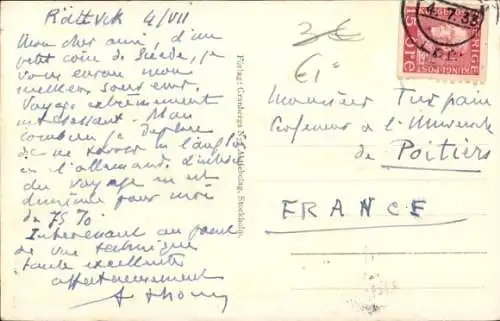 Rättvik 4/VII
Mon cher ami, d'un
petit coin de Suède, je
vous envoie mon
meilleur souvenir.
Voyage extrêmement
intéressant. Mais
combien je déplore
de ne savoir ni l'anglais
ni l'allemand. L'intérêt
du voyage en est
diminué pour moi
de 75 %.
Intéressant au point
de vue technique
toute excellente
affectueusement
Förlag: Grenbergs Nya Aktiebolag, Stockholm.
7.33
SVERIGE
15 ÖRE
3€
€1
Monsieur Turpain
Professeur à l'Université
de Poitiers
FRANCE